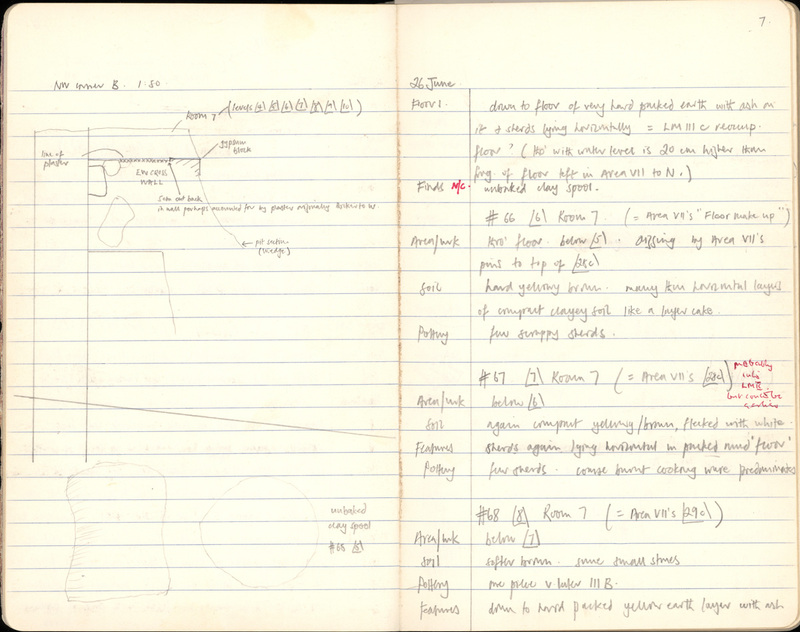 NW corner B. 1:50
Room 7 (levels /4\ /5\ /6\ /7\ /8\ /9\ /10\)
line of plaster
gypsum block
E/W CROSS WALL
5cm cut back
in wall perhaps accounted for by plaster originally
pit
(wedge)
unbaked
clay spool
#65 /5\
7.
26 June
Floor 1. down to floor of very hard packed earth with ash in
it & sherds lying horizontally = LM III C reoccup.
floor? ( tho' with water levels is 20 cm higher than
frag. of floor left in Area VII to N.)
Finds N/C. unbaked clay spool.
#66 /6\ Room 7. (= Area VII's "Floor make up")
Area/wk thro' floor. below /5\. digging by Area VII's
pins to top of /28c\
Soil hard yellowy brown. many thin horizontal layers
of compact clayey soil like a layer cake.
Pottery few scrappy sherds.
#67 /7\ Room 7 (= Area VII's /28c\) probably
into
LM III
but could be
earlier
Area/wk below /6\
Soil again compact yellowy/brown, flecked with white.
Features sherds again lying horizontal in packed mud 'floor'
Pottery few sherds. coarse burnt cooking ware predominates
#68 /8\ Room 7 (= Area VII's /29c\)
Area/wk below /7\
Soil softer brown. some small stones
Pottery one piece v later III B.
Features down to hard packed yellow earth layer with ash